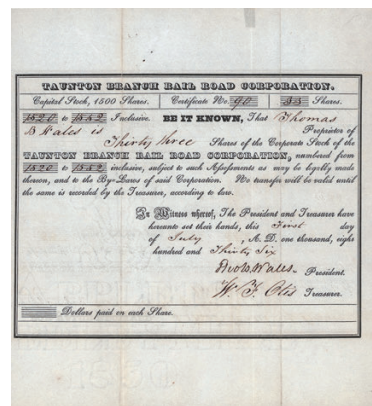 TAUNTON BRANCH RAIL ROAD CORPORATION.
Capital Stock, 1500 Shares. Certificate No. 90 33 Shares.
1520 to 1552 Inclusive. BE IT KNOWN, That Thomas
B Wales is Proprietor of
Thirty three Shares of the Corporate Stock of the
TAUNTON BRANCH RAIL ROAD CORPORATION, numbered from
1520 to 1552 inclusive, subject to such Assessments as may be legally made
thereon, and to the By-Laws of said Corporation. No transfer will be valid until
the same is recorded by the Treasurer, according to law.
In Witness whereof, The President and Treasurer have
hereunto set their hands, this First day
of July , A. D. one thousand, eight
hundred and Thirty Six
Wales President.
W. F. Otis Treasurer.
Dollars paid on each Share.